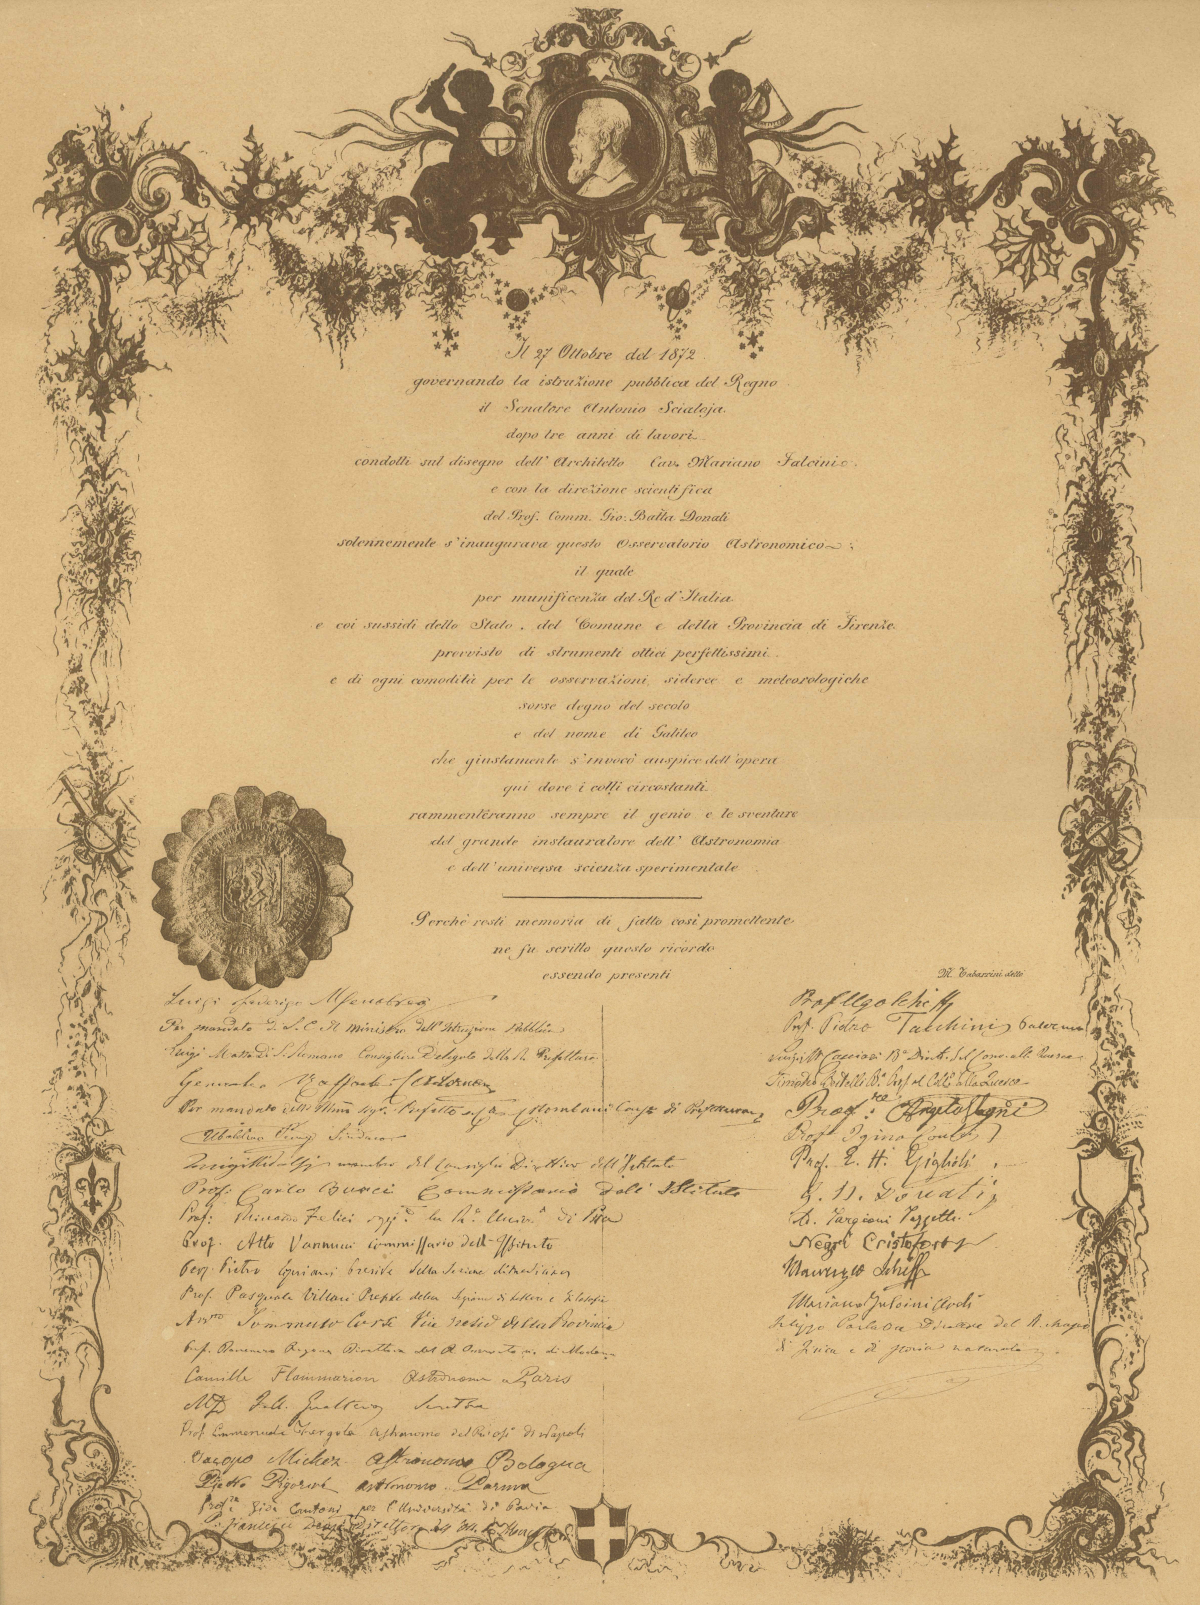 Il 27 Ottobre del 1872
governando la istruzione pubblica del Regno
il Senatore Antonio Scialoja
dopo tre anni di lavori
condotti sul disegno dell'Architetto Cav. Mariano Falcini
e con la direzione scientifica
del Prof. Comm. Gio: Batta Donati
solennemente s'inaugurava questo Osservatorio Astronomico
il quale
per munificenza del Re d'Italia
e coi sussidi dello Stato, del Comune e della Provincia di Firenze
provvisto di strumenti ottici perfettissimi
e di ogni comodità per le osservazioni sideree e meteorologiche
sorse degno del secolo
e del nome di Galileo
che giustamente s'invocò auspice dell'opera
qui dove i colli circostanti
rammenteranno sempre il genio e le sventure
del grande instauratore dell'Astronomia
e dell'universa scienza sperimentale
Perchè resti memoria di fatto così promettente
ne fu scritto questo ricordo
essendo presenti
M. Tabarrini dettò
Luigi Federigo Menabrea
Per mandato di S. E. il Ministro dell'Istruzione Pubblica
Luigi Consigliere Delegato della R. Prefettura
Generale Raffaele
Per mandato dell' Prefetto Cons. di Prefettura
Ubaldino Peruzzi Sindaco
membro del Consiglio Direttivo dell'Istituto
Prof. Carlo Bucci Commissario dell'Istituto
Prof. Felici la R. Univ. di Pisa
Prof. Atto Vannucci Commissario dell'Istituto
Prof. Pietro Cipriani Preside della Sezione di medicina
Prof. Pasquale Villari Preside della Sezione di lettere e filosofia
della Provincia
Prof. Domenico Ragona Direttore del R. Osservatorio di Modena
Camille Flammarion Astronome à Paris
Prof. Emmanuele Fergola astronomo del R. Oss. di Napoli
Jacopo Michez astronomo Bologna
Pietro Pigorini astronomo Parma
Prof. Gio. Cantoni per l'Università di Pavia
Francesco Denza Direttore
Prof. Ugo Schiff
Prof. Pietro Tacchini Palermo
Prof. Angelo Vegni
Prof. Igino Cocchi
Prof. E. H. Giglioli
G. B. Donati
Ad. Targioni Tozzetti
Negri Cristoforo
Maurizio Schiff
Mariano Falcini Arch.
Filippo Parlatore Direttore del R. Museo
di Fisica e di storia naturale